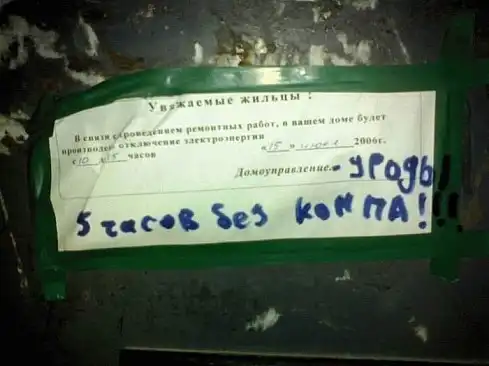 Уважаемые жильцы !
В связи с проведением ремонтных работ, в вашем доме будет
произведено отключение электроэнергии «15» июля 2006г.
с 10 до 15 часов
Домоуправление. - УРОДЫ!
5 часов без компА!!!